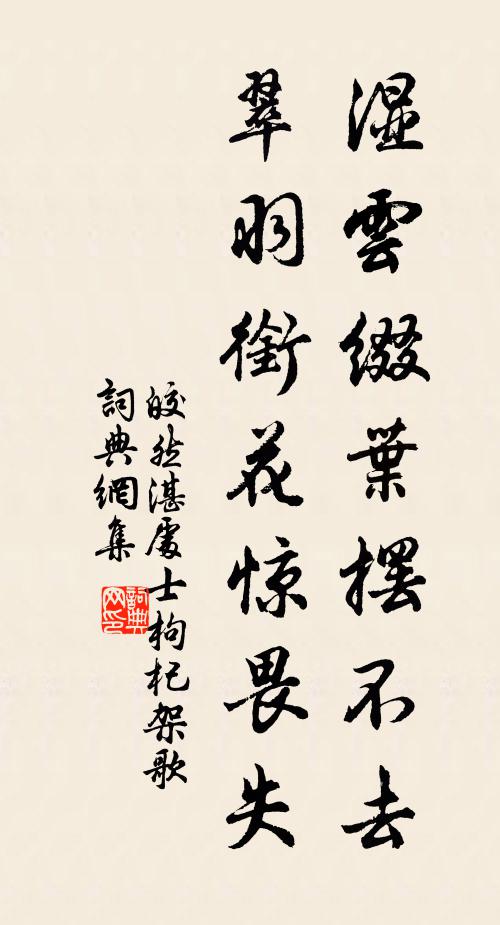 湿雲綴葉擺不去
翠羽銜花惊畏失
皎然湛處士枸杞架歌
詞典網集
詞典网印